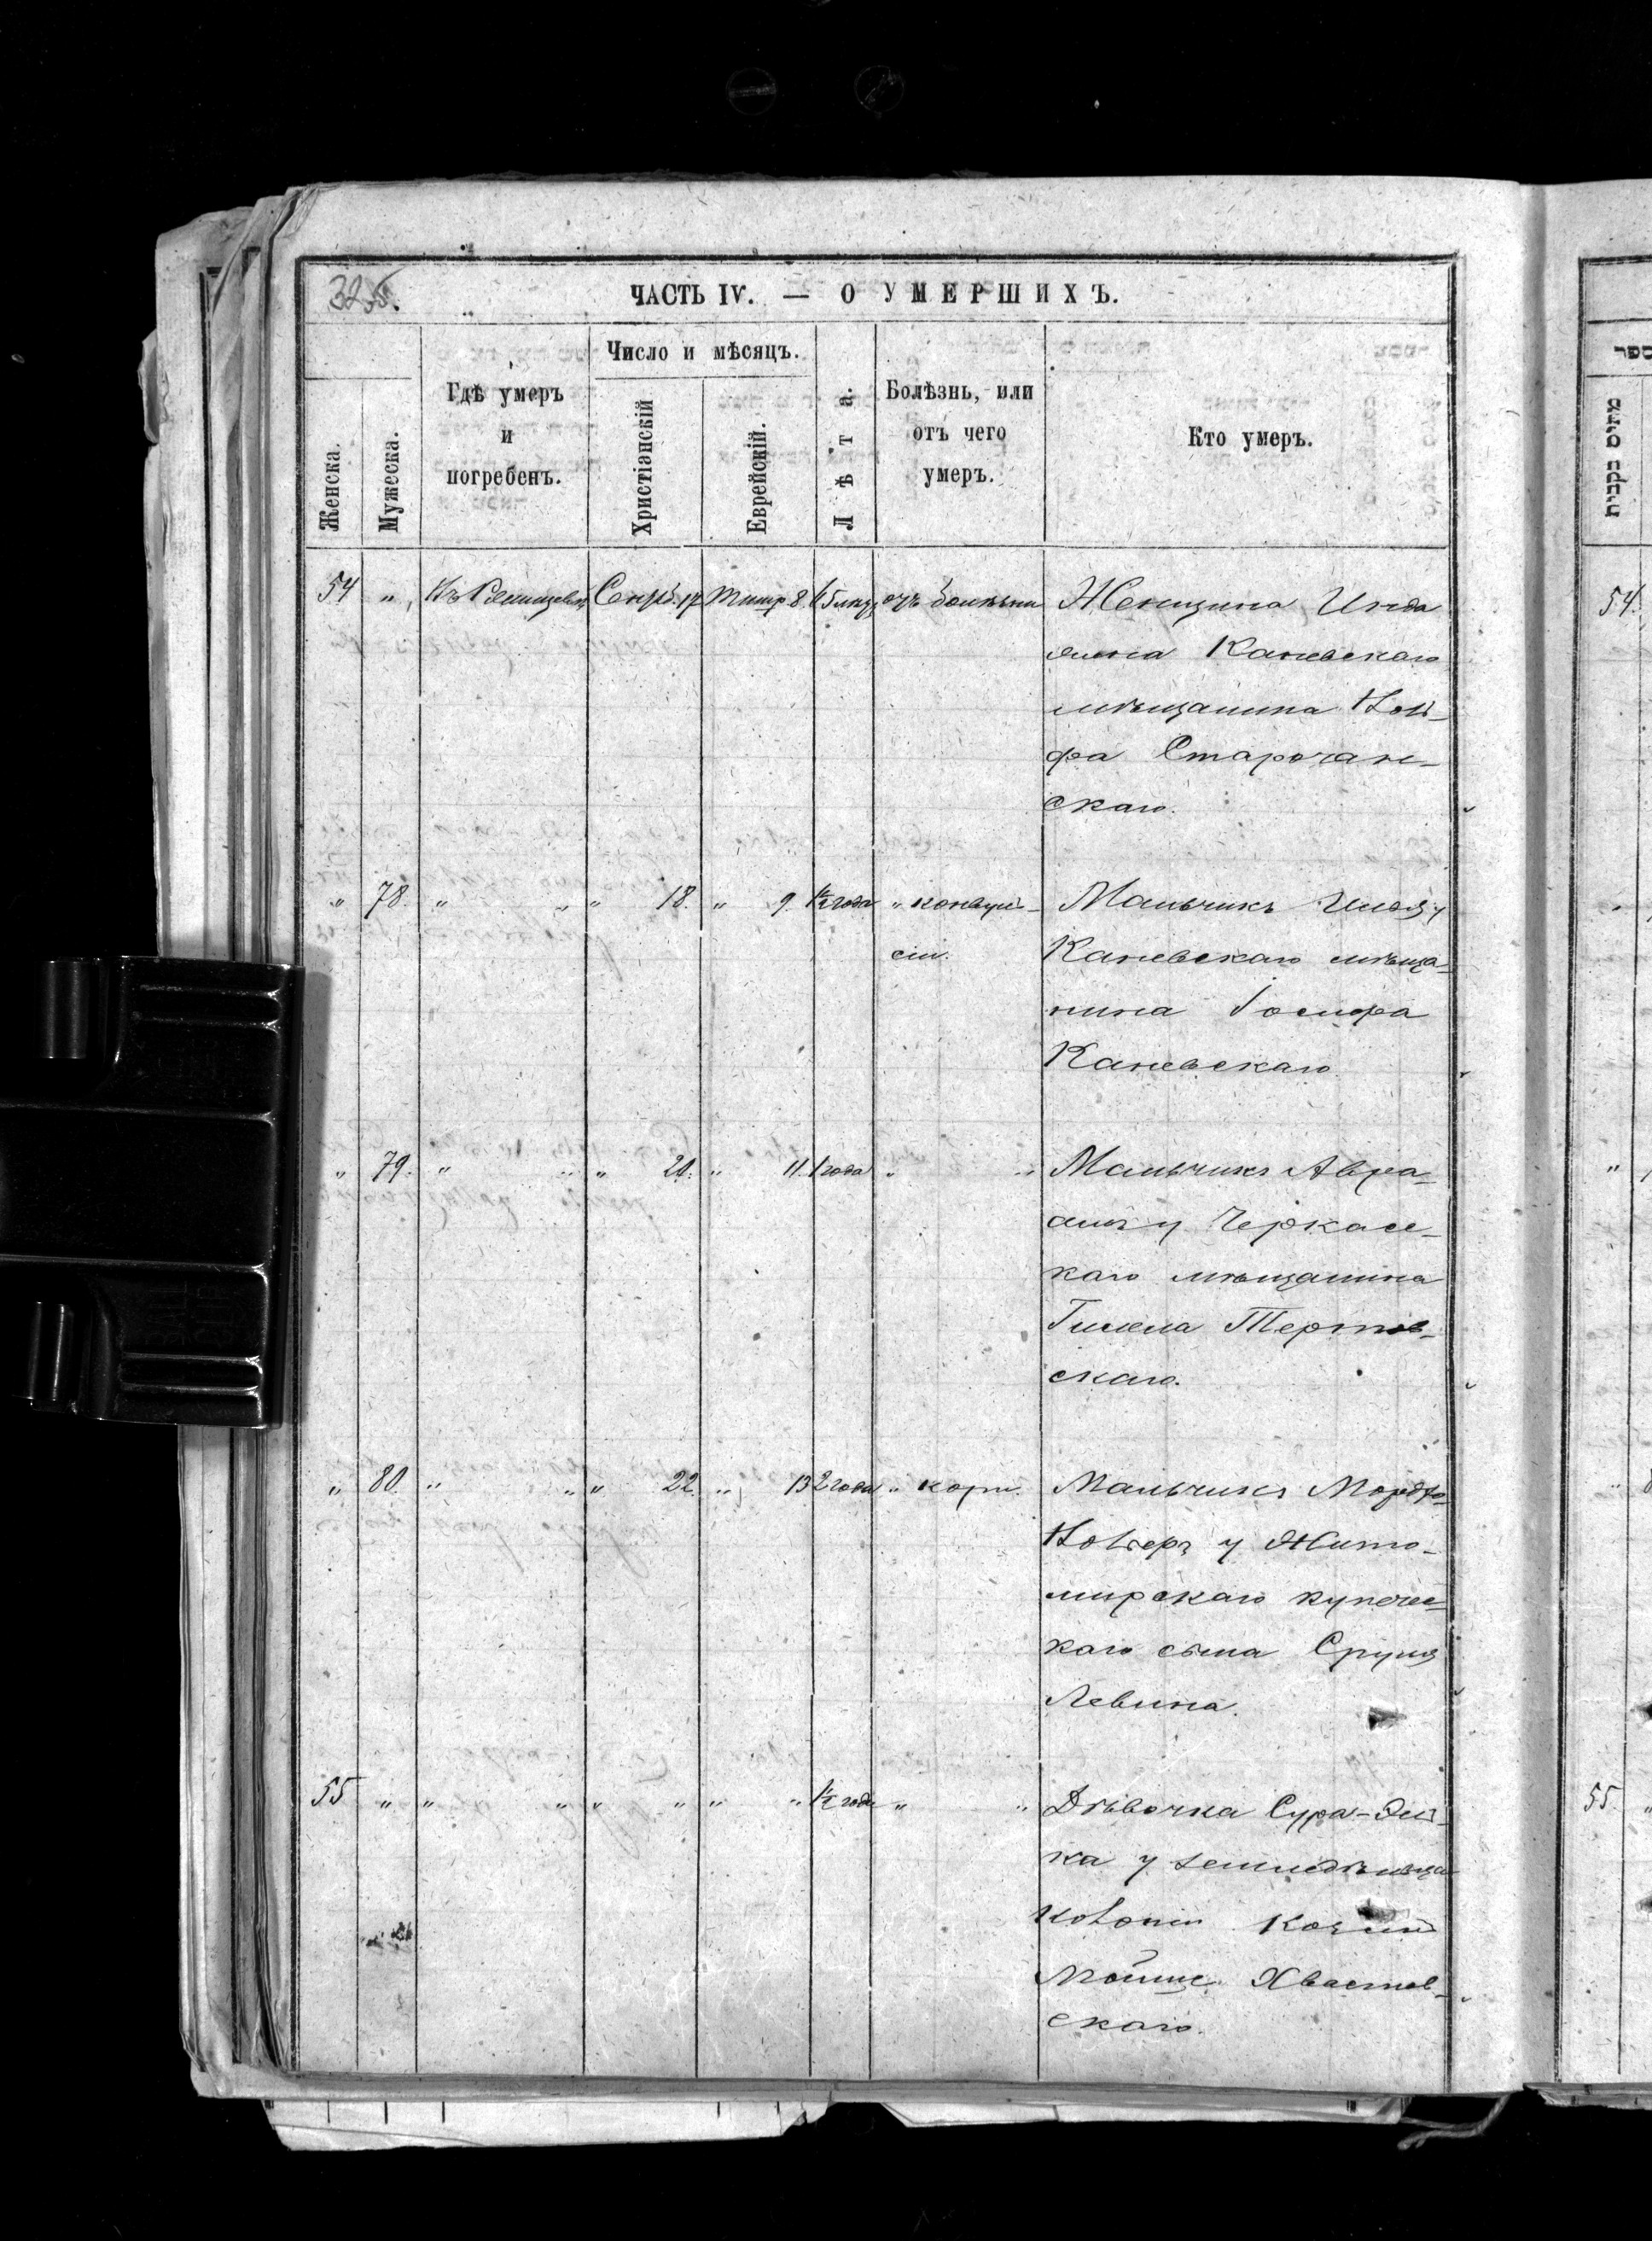 325.
ЧАСТЬ IV. — О УМЕРШИХЪ.
Женска.
Мужеска.
Гдѣ умеръ
и
погребенъ.
Число и мѣсяцъ.
Христіанскій
Еврейскій.
Лѣта.
Болѣзнь, или
отъ чего
умеръ.
Кто умеръ.
54 " Въ Сентб. 17 Тишр. 8. 65 лѣтъ отъ болѣзни Женщина
жена Каневскаго
мѣщанина Воль-
фа Старочан-
скаго.
" 78. " " " 18. " 9. 1½ года " конвуль-
сіи.
Мальчикъ у
Каневскаго мѣща-
нина Іосифа
Каневскаго.
" 79. " " " 20. " 11. 1 года " " Мальчикъ Авра-
амъ у Черкас-
каго мѣщанина
Гилела
скаго.
" 80. " " " 22. " 13 2 года " кори. Мальчикъ Мордко
Вольеръ у Жито-
мирскаго купечес-
каго сына Сруля
Левина.
55 " " " " " " " 1½ года " " Дѣвочка Сура-Эль-
ка у земледѣльца
колоніи
Мойше Хвастов-
скаго.
ספר
מתים
נקבית
54.
"
55.